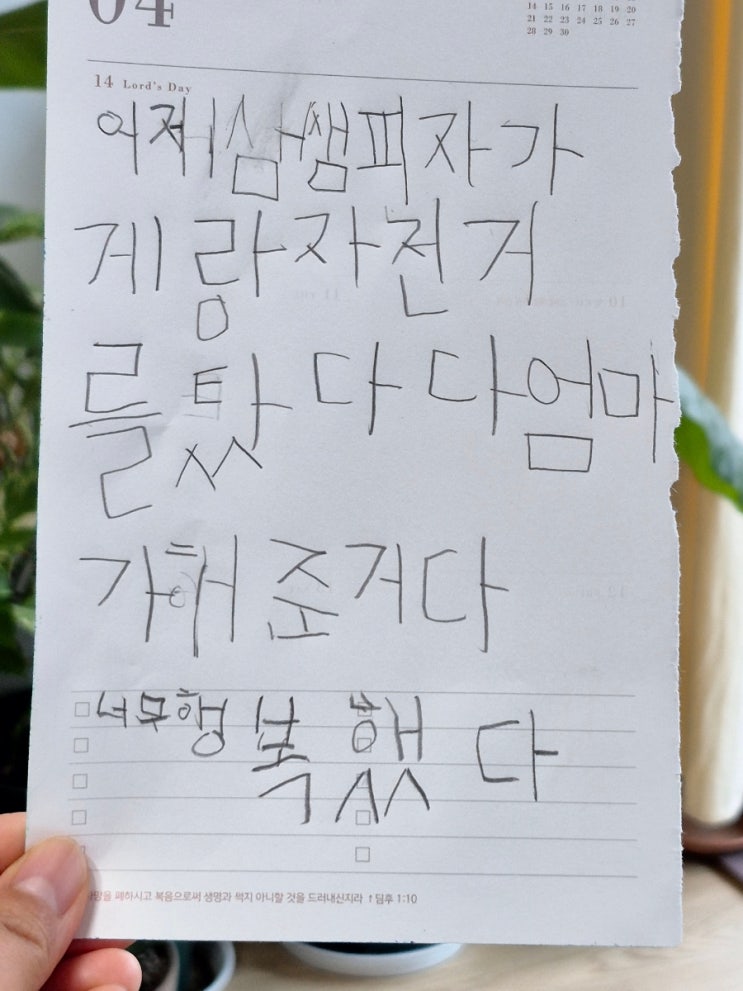 04
14 15 16 17 18 19 20
21 22 23 24 25 26 27
28 29 30
14 Lord's Day
어제 삼쌤피자가
게랑자전거
를탔다다엄마
가해준거다
너무행복했다
망을 폐하시고 복음으로써 생명과 썩지 아니할 것을 드러내신지라 딤후 1:10